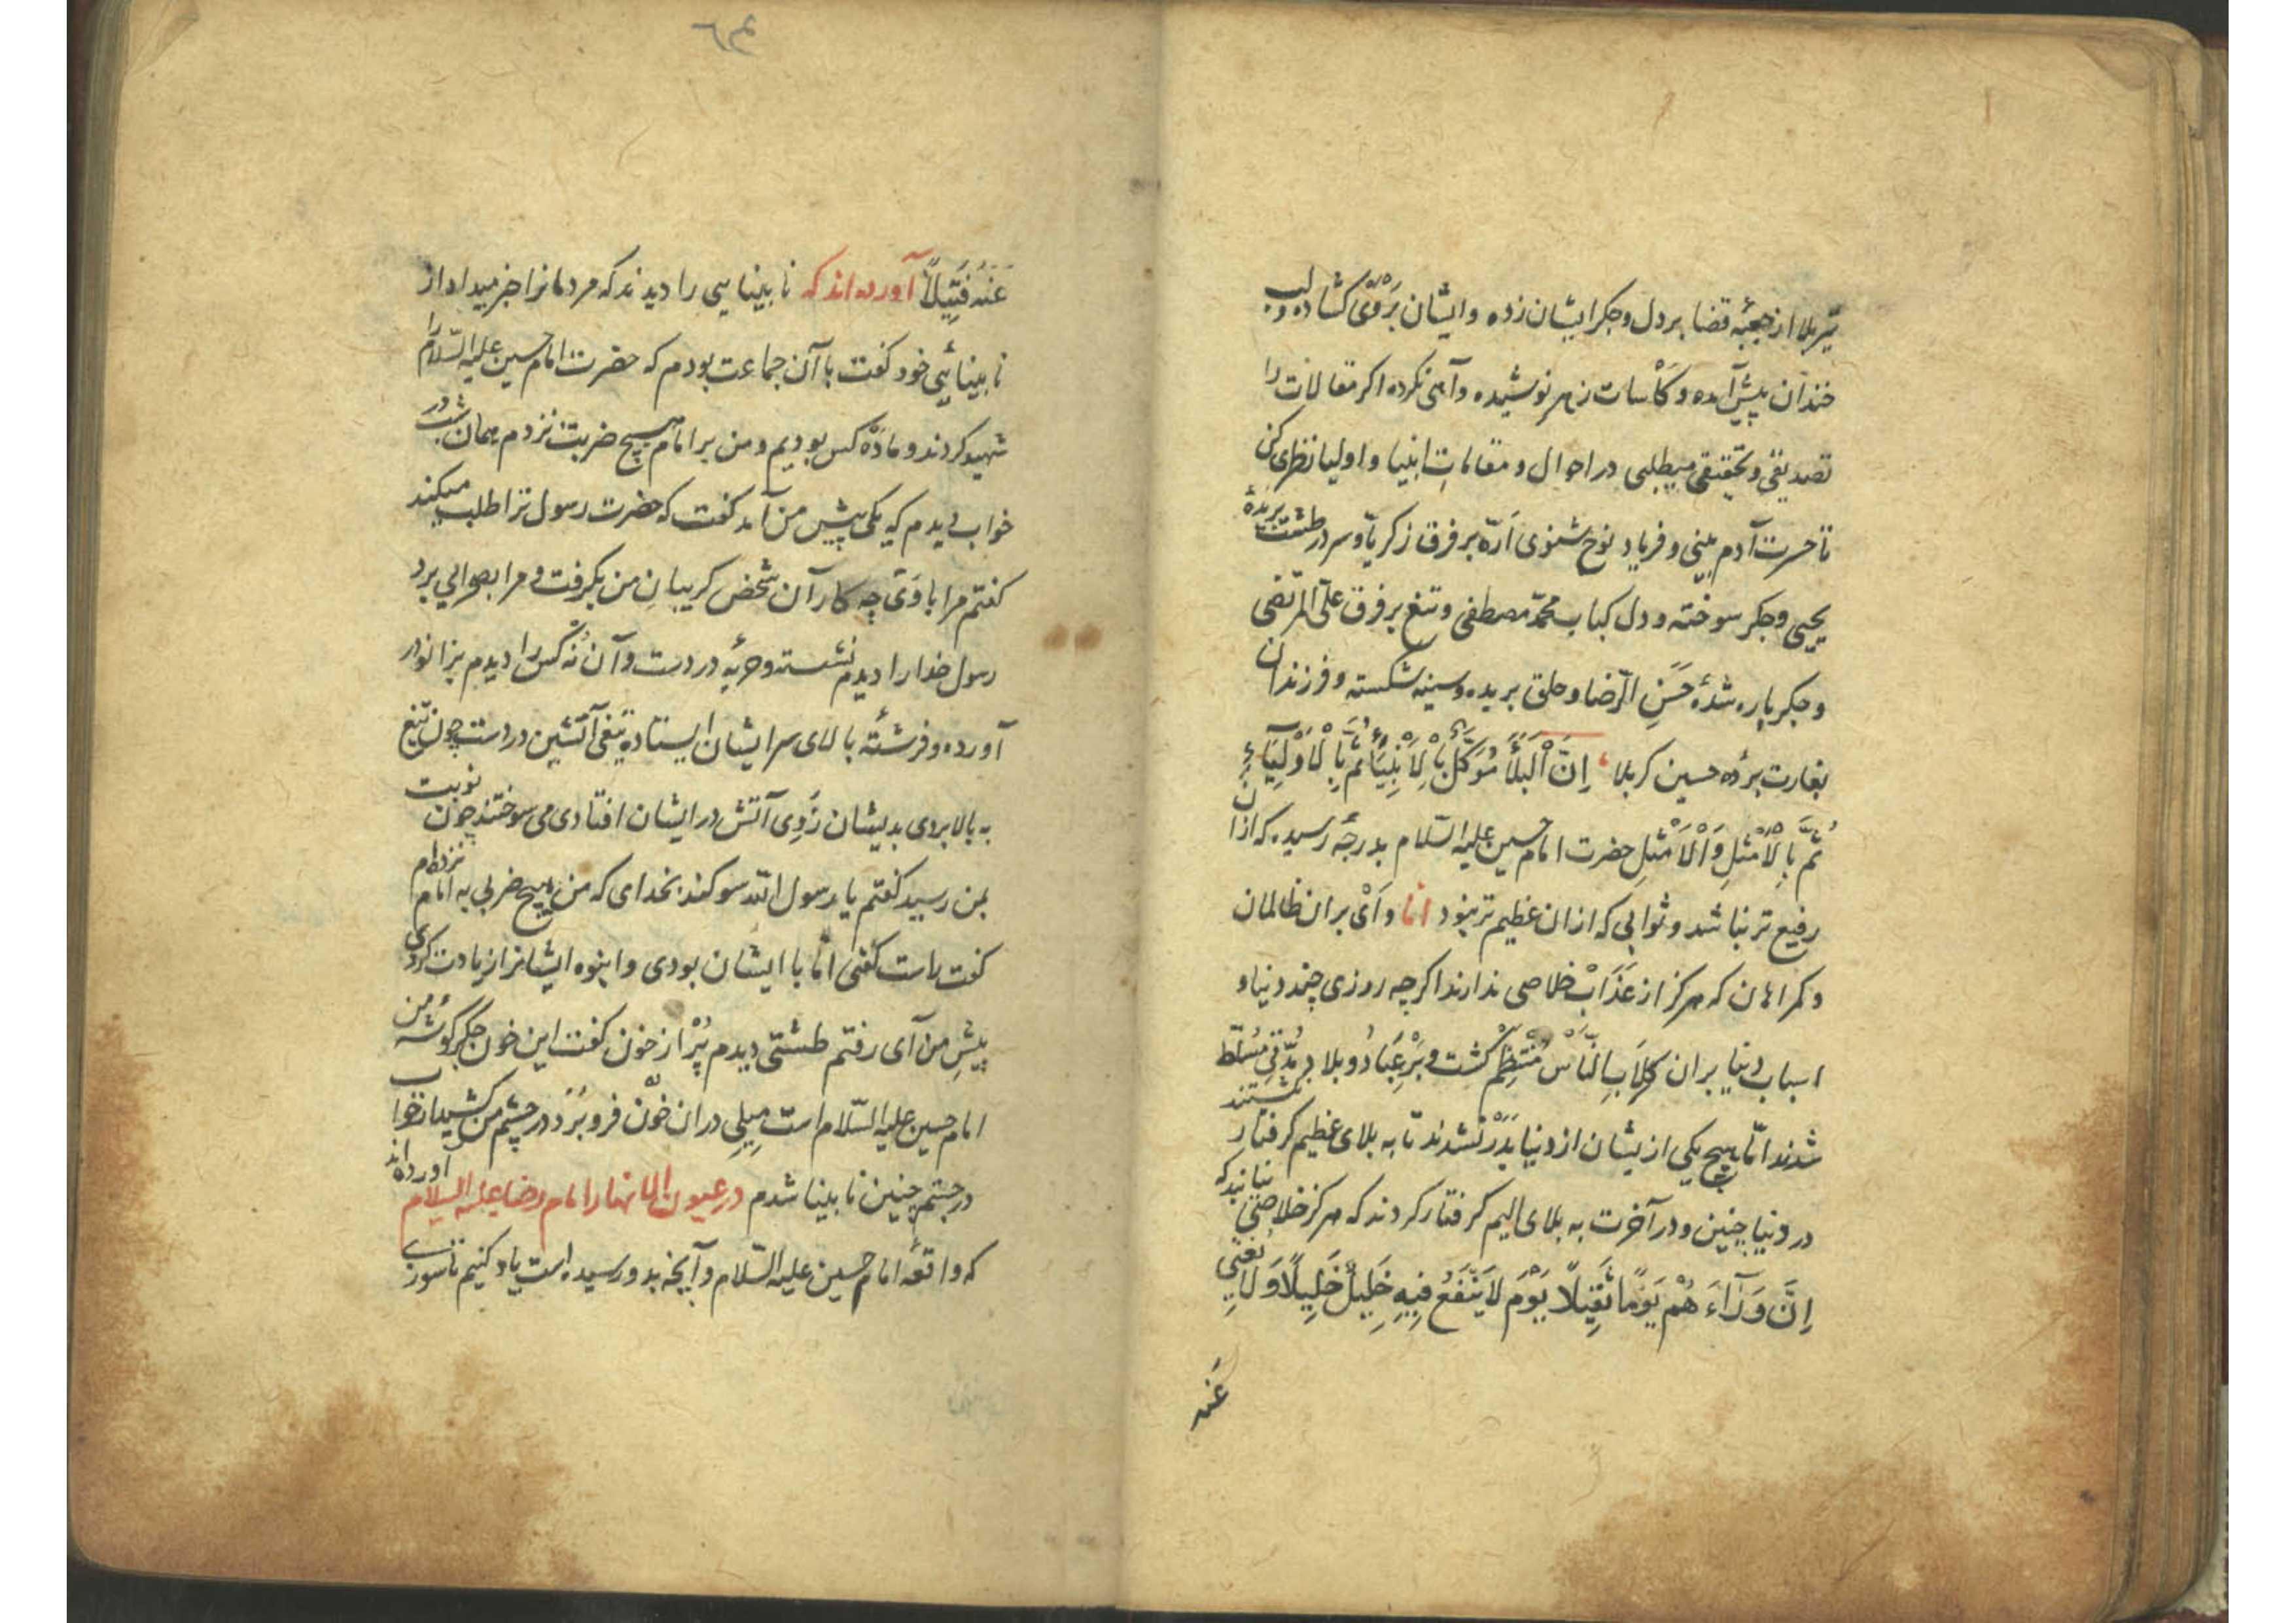 تیر بلا از جعبهٔ قضا بر دل و جکر ایشان زده و ایشان بروی کشاده و لب
خندان پیش آمده و کاسات زهر نوشیده و آهی نکرده اکر مقالات را
تصدیقی و تحقیقی میطلبی در احوال و مقامات انبیا و اولیا نظری کن
تا حسرت آدم بینی و فریاد نوح شنوی ارّه بر فرق زکریا و سر در طشت بریدهٔ
یحیی و جکر سوخته و دل کباب محمّد مصطفی و تیغ بر فرق علیّ المرتضی
و جکر پاره شدهٔ حَسَنِ الرّضا و حلق بریده و سینه شکسته و فرزندان
بغارت بردهٔ حسین کربلا اِنَّ اْلبَلاَءَ مُوَکَّلٌ بِاْلاَنْبِیَاءِ ثُمَّ بِاْلاَوْلِیَاءِ
ثُمَّ بِاْلاَمْثَلِ وَاْلاَمْثَلِ حضرت امام حسین علیه السّلام بدرجهٔ رسیده که از ان
رفیع تر نباشد و ثوابی که ازان عظیم تر نبود اما وای بران ظالمان
و کمراهان که هرکز از عَذَابْ خلاصی ندارند اکرچه روزی چند دنیا و
اسباب دنیا بران کِلاَبِ النَّاسْ مُنْتَظِمْ کشت و بَرْ عِبَادُ و بلاد مسلّط
شدند امّا هیچ یکی ازیشان از دنیا بَدَرْ نشدند تا به بلای عظیم کرفتار نکشتند
در دنیا چنین و در آخرت به بلای الیم کرفتار کردند که هرکز خلاصی نیابند که
اِنَّ وَرَآءَ هُمْ یَوْمًا ثَقِیلاً یَوْمَ لاَ یَنْفَعُ فِیهِ خَلِیلٌ خَلِیلاً وَ لاَ یُغْنِی
عَنه
عَنه فَتِیلاً آورده اند که نابینایی را دیدند که مردمانرا خبر میداد از
نابینائیِ خود کفت با آن جماعت بودم که حضرت امام حسین علیه السّلام را
شهید کردند و ما دَهْ کس بودیم و من بر امام هیچ ضربت نزدم همان شب در
خواب دیدم که یکی پیش من آمد کفت که حضرت رسول ترا طلب میکند
کفتم مرا با وَی چه کار آن شخص کریبانِ من بکرفت و مرا بصحرایی برد
رسول خدا را دیدم نشسته و حربهٔ در دست و آن نُه کس را دیدم بزانو در
آورده و فرشتهٔ بالای سر ایشان ایستاده تیغی آتشین در دست چون تیغ
به بالا بردی بدیشان زَدِی آتش در ایشان افتادی می سوختند چون نوبت
بمن رسید کفتم یا رسول اللّه سوکند بخدای که من هیچ ضربی به امام نزده ام
کفت راست کفتی امّا با ایشان بودی و انبوه ایشانرا زیادت کردی
پیشِ من آی رفتم طشتی دیدم پُرْ از خون کفت این خون جکر کوشهٔ من
امام حسین علیه السّلام است مِیلِی دران خون فرو بُرد و در چشم من کشید از خواب
در جستم چنین نابینا شدم در عیون امام رضا علیه السلام آورده اند
که واقعهٔ امام حسین علیه السّلام و آنچه بدو رسیده است یاد کنیم تا